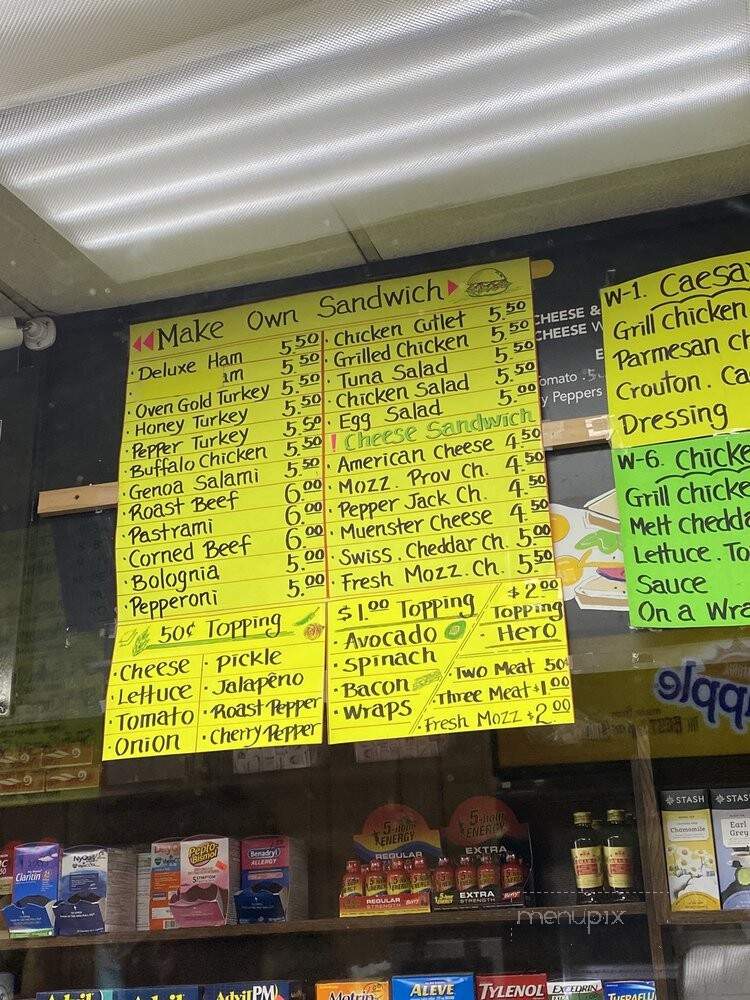 Make Own Sandwich
Deluxe Ham 5.50
5.50
Oven Gold Turkey 5.50
Honey Turkey 5.50
Pepper Turkey 5.50
Buffalo Chicken 5.50
Genoa Salami 5.50
Roast Beef 6.00
Pastrami 6.00
Corned Beef 6.00
Bolognia 5.00
Pepperoni 5.00
Chicken Cutlet 5.50
Grilled Chicken 5.50
Tuna Salad 5.50
Chicken Salad 5.50
Egg Salad 5.00
! Cheese Sandwich
American Cheese 4.50
Mozz. Prov Ch. 4.50
Pepper Jack Ch. 4.50
Muenster Cheese 4.50
Swiss. Cheddar Ch. 5.00
Fresh Mozz. Ch. 5.50
50¢ Topping
Cheese
Lettuce
Tomato
Onion
Pickle
Jalapeño
Roast Pepper
Cherry Pepper
$1.00 Topping
Avocado
Spinach
Bacon
Wraps
$2.00
Topping
Hero
Two Meat 50¢
Three Meat $1.00
Fresh Mozz $2.00
CHEESE &
CHEESE W
omato
y Peppers
W-1. Caesa
Grill Chicken
Parmesan ch
Crouton. Ca
Dressing
W-6. Chicke
Grill Chicke
Melt Chedda
Lettuce. To
Sauce
On a Wra
pple
Claritin
NyQuil
Pepto-Bismol
Benadryl
ALLERGY
5-hour ENERGY
REGULAR
REGULAR STRENGTH
Berry
5-hour ENERGY
EXTRA
EXTRA STRENGTH
Berry
STASH
Chamomile
STAS
Earl
Grey
Advil
Advil
Advil PM
Motrin
ALEVE
TYLENOL
EXCEDRIN
THERAFLU
menupix